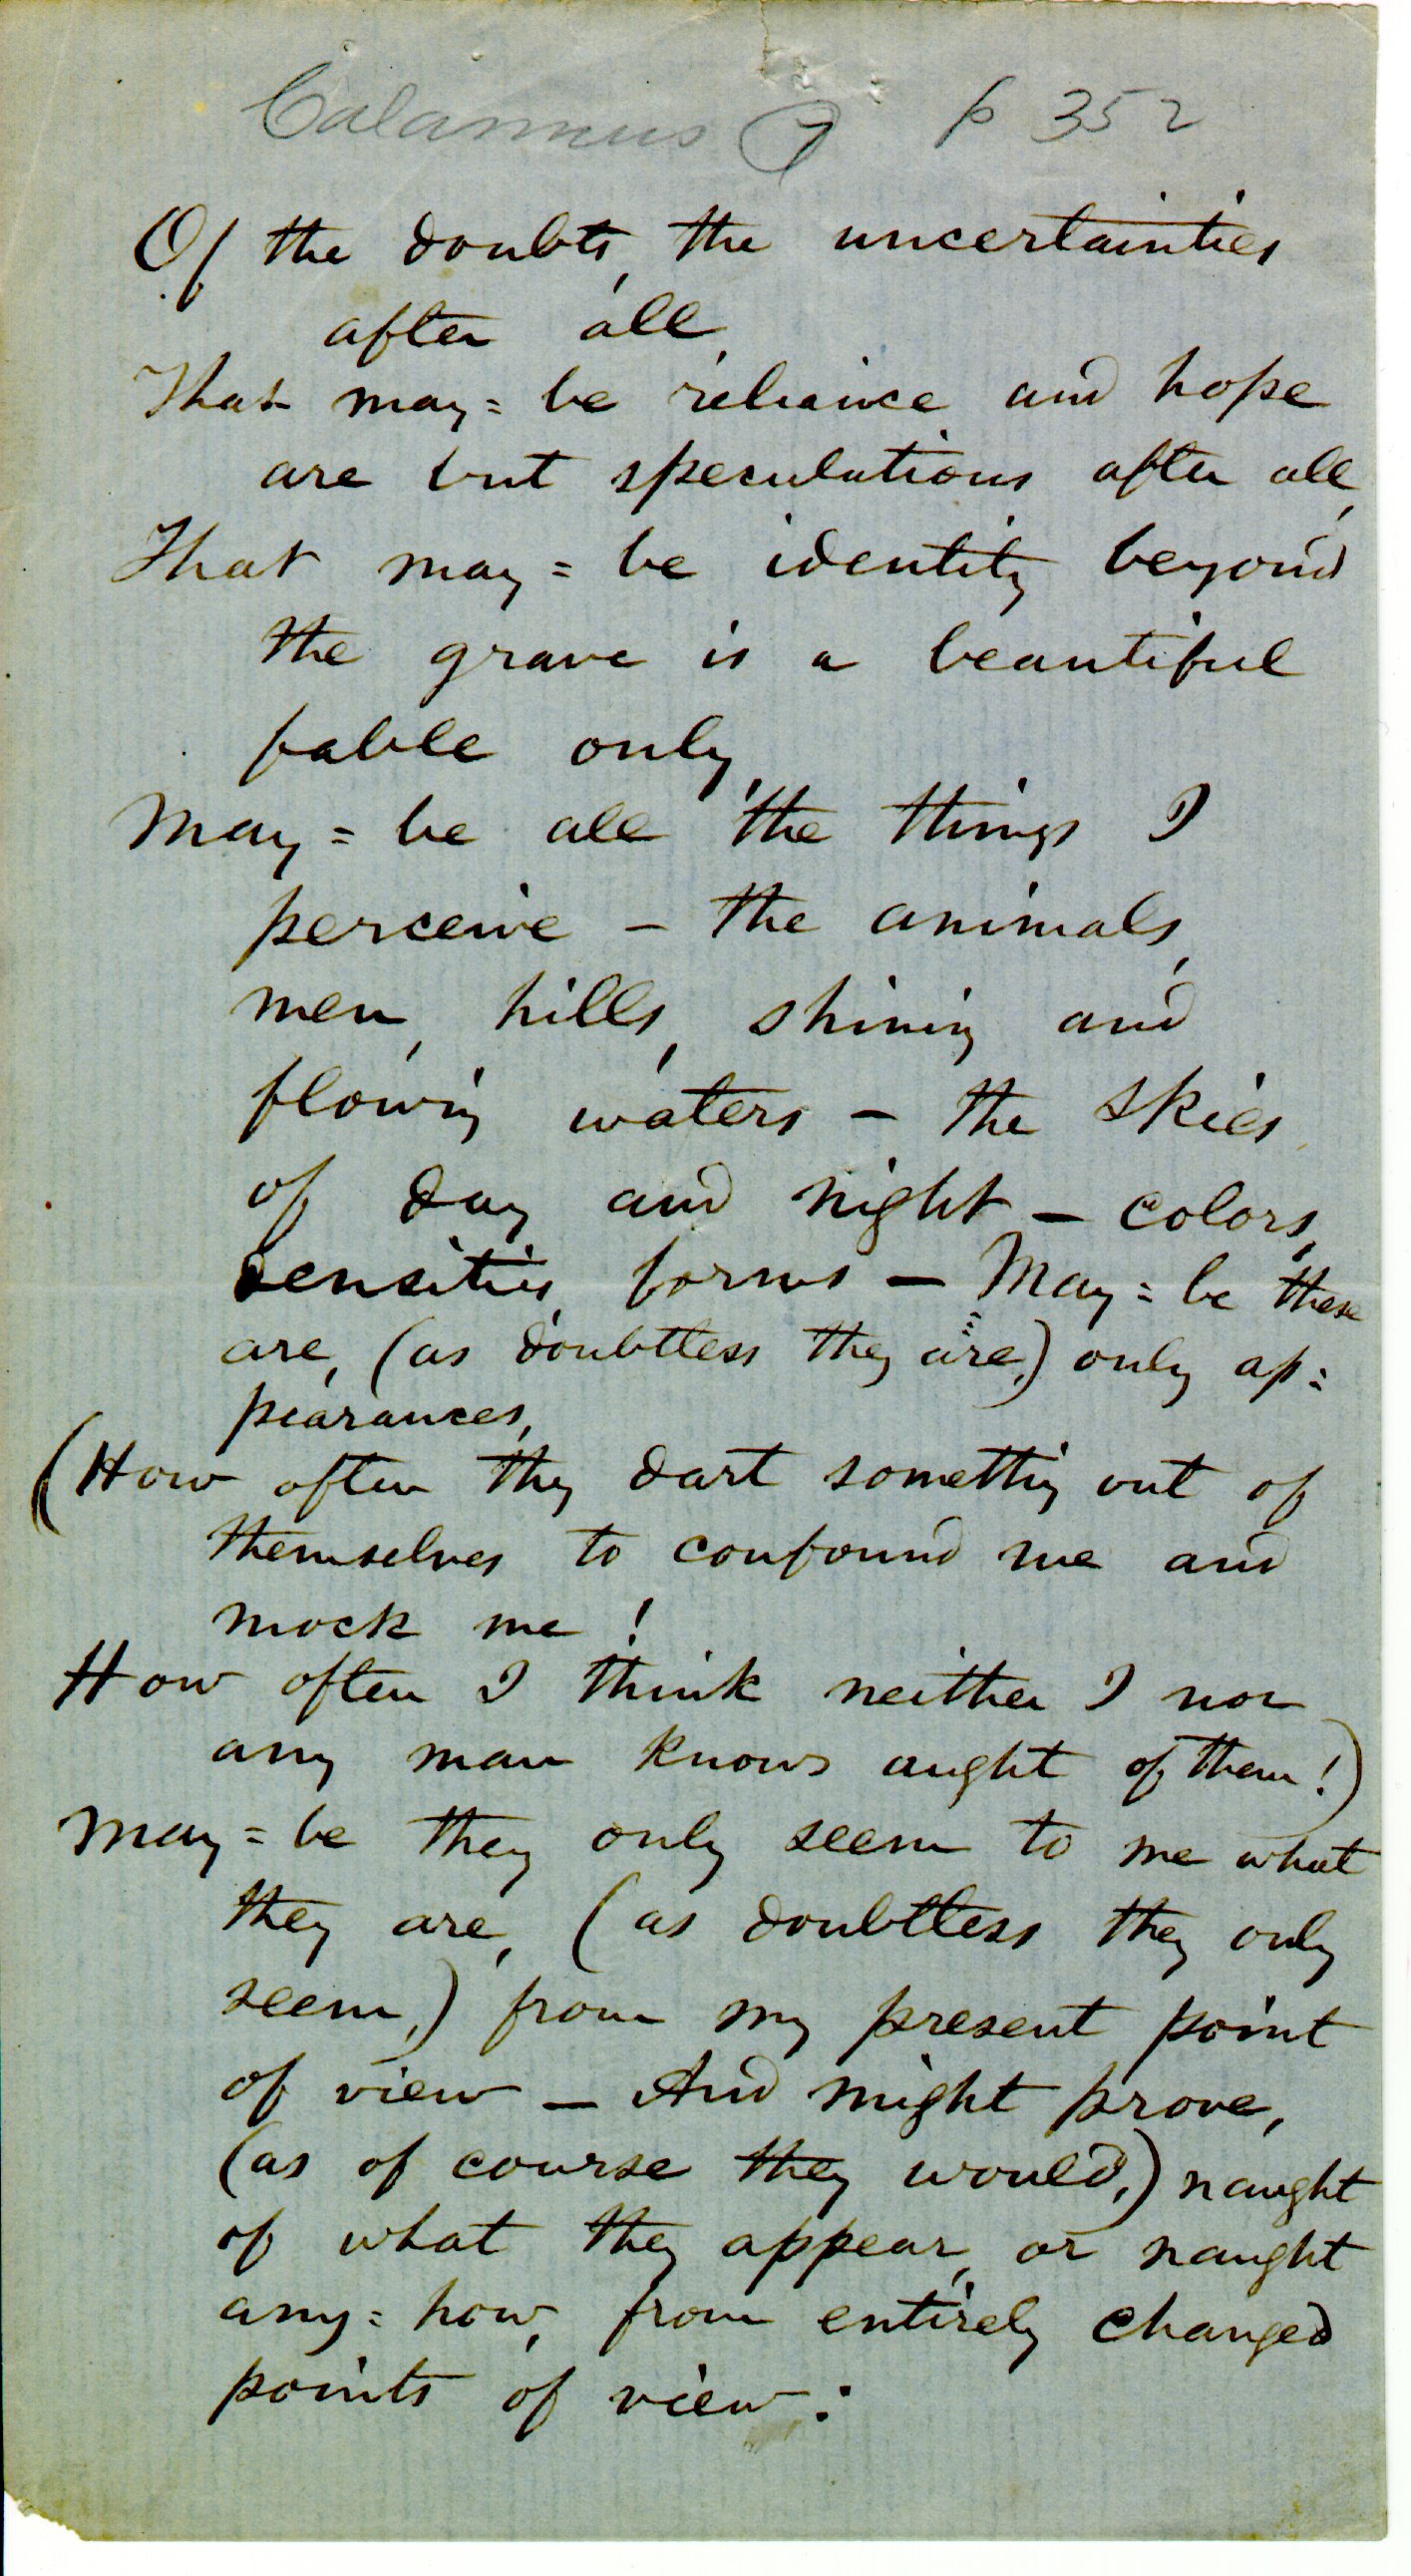 Calamus 7 p 352
Of the doubts, the uncertainties
after all,
That may=be reliance and hope
are but speculations after all,
That may=be identity beyond
the grave is a beautiful
fable only,
May=be all the things I
perceive – the animals,
men, hills, shining and
flowing waters – the skies
of day and night – colors,
densities, forms – May=be these
are, (as doubtless they are,) only ap=
pearances,
(How often they dart something out of
themselves to confound me and
mock me!
How often I think neither I nor
any man knows aught of them!)
May=be they only seem to me what
they are, (as doubtless they only
seem,) from my present point
of view – And might prove,
(as of course they would,) naught
of what they appear, or naught
any=how, from entirely changed
points of view: